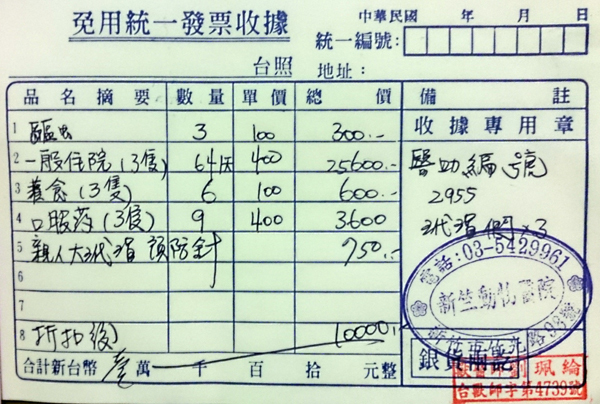 免用統一發票收據
中華民國 年 月 日
統一編號:
台照 地址:
品名摘要 數量 單價 總價 備註
1 驅虫 3 100 300.-
收據專用章
2 一般住院(3隻) 64天 400 25600.-
醫助編號
3 養食(3隻) 6 100 600.-
2955
4 口服药(3隻) 9 400 3600
×3
5 預防針 750.-
電話:03-5429961
6
新竺動物醫院
7
新竹市竹光路98號
8 折扣後 10000.-
銀貨兩訖
合計新台幣 壹萬 千 百 拾 元整
劉珮綸
台獸師字第4739號